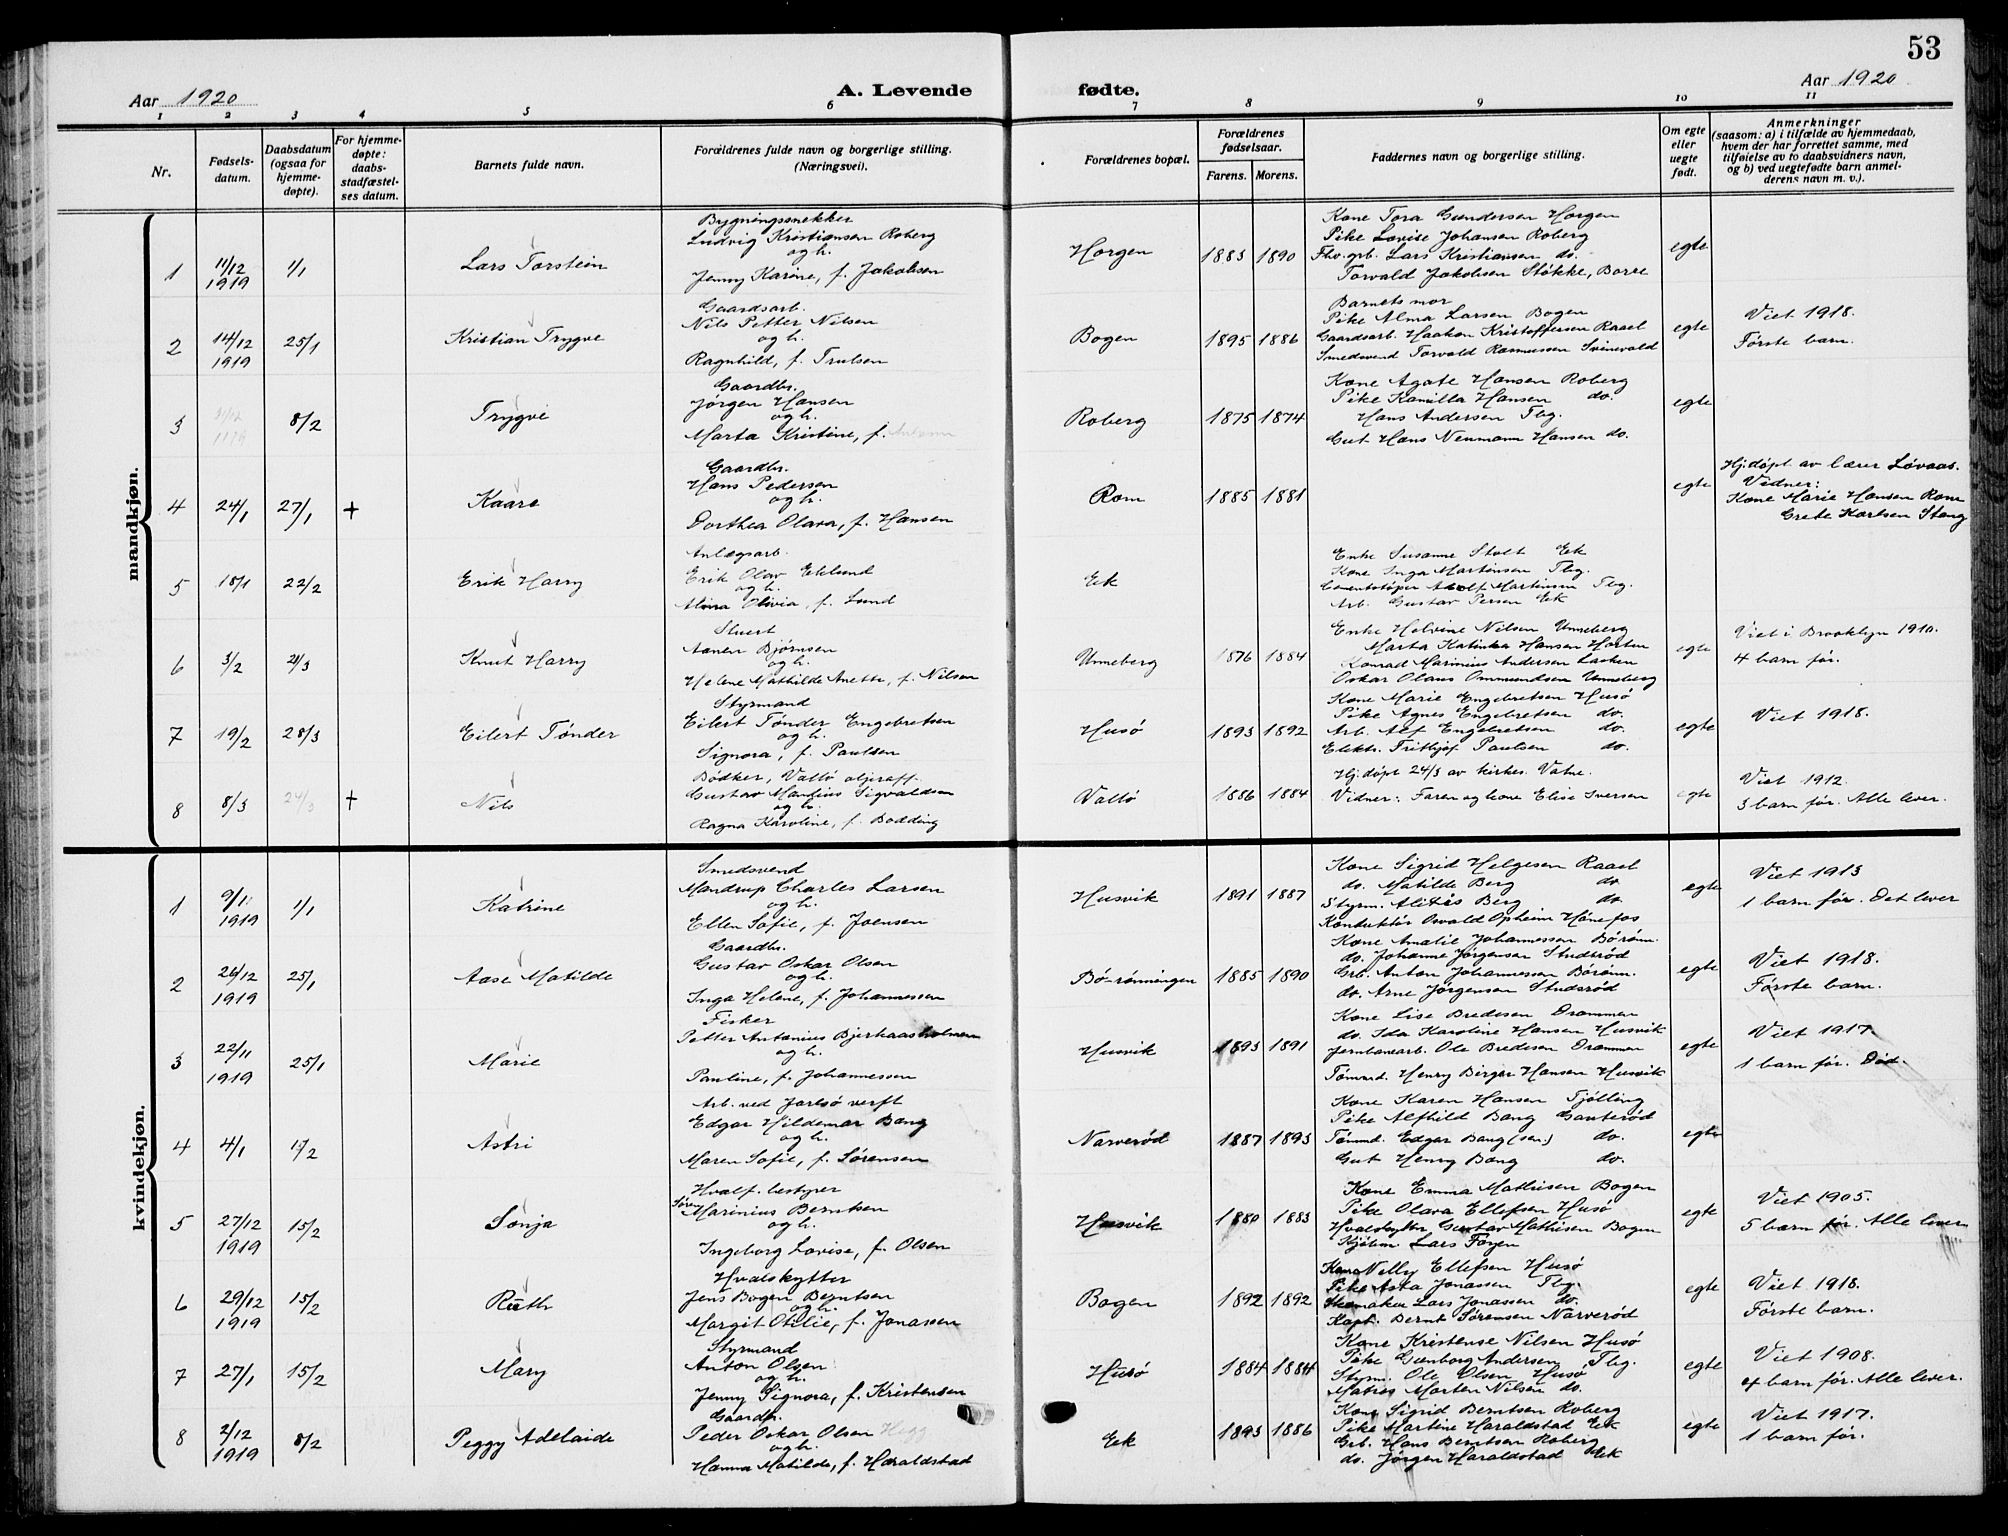 53
Aar 1920
A. Levende
fødte.
Aar 1920
1 2 3 4 5 6 7 8 9 10 11
Nr.
Fødsels-
datum.
Daabsdatum
(ogsaa for
hjemme-
døpte).
For hjemme-
døpte:
daabs-
stadfæstel-
ses datum.
Barnets fulde navn.
Forældrenes fulde navn og borgerlige stilling.
(Næringsvei).
Forældrenes bopæl.
Forældrenes
fødselsaar.
Farens. Morens.
Faddernes navn og borgerlige stilling.
Om egte
eller
uegte
født.
Anmerkninger
(saasom: a) i tilfælde av hjemmedaab,
hvem der har forrettet samme, med
tilføielse av to daabsvidners navn,
og b) ved uegtefødte barn anmel-
derens navn m. v.).
mandkjøn.
1 11/12 1919 1/1 Lars Torstein
Bygningssnekker
Ludvig Kristiansen Roberg
og h.
Jenny Karine, f. Jakobsen
Horgen 1883 1890
Kone Tora Gundersen Horgen
Pike Lovise Johansen Roberg
Fhv. grb. Lars Kristiansen do.
Torvald Jakobsen Støkke, Borre
egte
2 14/12 1919 25/1 Kristian Trygve
Gaardsarb.
Nils Petter Nilsen
og h.
Ragnhild, f. Trulsen
Bogen 1895 1886
Barnets mor
Pike Alma Larsen Bogen
Gaardsarb. Haakon Kristoffersen Raael
Smedsvend Torvald Rasmussen Svinevold
egte
Viet 1918.
Første barn.
3 31/12 8/2 Trygve
Gaardbr.
Jørgen Hansen
og h.
Marta Kristine, f.
Roberg 1875 1874
Kone Agate Hansen Roberg
Pike Kamilla Hansen do.
Hans Andersen Tbg.
Gut Hans Neumann Hansen do.
egte
4 24/1 27/1 + Kaare
Gaardbr.
Hans Pedersen
og h.
Dorthea Olava, f. Hansen
Rom 1885 1881
egte
Hj. døpt av lærer Løvaas.
Vidner:
Kone Marie Hansen Rom
Grete Karlsen Stang
5 18/1 22/2 Erik Harry
Anlægsarb.
Erik Olav Eklund
og h.
Alvina Olivia, f. Lund
Eek
Enke Susanne Stolt Eek
Kone Inga Martinsen Tbg.
Cementstøper Adolf Martinsen Tbg.
Arb. Gustav Persen Eek
6 3/2 21/3 Knut Harry
Stuert
Aanen Bjørnsen
og h.
Helene Mathilde Anette, f. Nilsen
Unneberg 1876 1884
Enke Helvine Nilsen Unneberg
Marta Katinka Hansen Horten
Konrad Marinius Andersen
Oskar Olaus Ommundsen Unneberg
egte
Viet i Brooklyn 1910.
4 barn før.
7 19/2 28/3 Eilert Tønder
Styrmand
Eilert Tønder Engebretsen
og h.
Signora, f. Paulsen
Husø 1893 1892
Kone Marie Engebretsen Husø
Pike Agnes Engebretsen do.
Arb. Alf Engebretsen do.
Elektr. Frithjof Paulsen do.
egte
Viet 1918.
8 8/3 24/3 + Nils
Bødker, Vallø oljeraff.
Gustav Mantius Sigvaldsen
og h.
Ragna Karoline, f. Bodding
Vallø 1886 1884
Hj. døpt 24/3 av kirkes. Vatne.
Vidner: Faren og kone Elise Iversen
egte
Viet 1912.
3 barn før. Alle lever.
kvindekjøn.
1 9/11 1919 1/1 Katrine
Smedsvend
Mandrup Charles Larsen
og h.
Ellen Sofie, f. Joensen
Husvik 1891 1887
Kone Sigrid Helgesen Raael
do. Matilde Berg do.
Styrm. Alitös Berg do.
Konduktør Osvald Opheim Hønefos
egte
Viet 1913
1 barn før. Det lever
2 26/12 1919 25/1 Aase Matilde
Gaardbr.
Gustav Oskar Olsen
og h.
Inga Helene, f. Johannessen
Bö-rønningen 1885 1890
Kone Amalie Johannessen Börönn.
do. Johanne Jørgensen Studsrød
Grb. Anton Johannessen Börönn.
do. Arne Jørgensen Studsrød
egte
Viet 1918.
Første barn.
3 22/11 1919 25/1 Marie
Fisker
Petter Antonius Bjerkaasholmen
og h.
Pauline, f. Johannessen
Husvik 1893 1891
Kone Lise Bredesen Drammen
do. Ida Karoline Hansen Husvik
Jernbanearb. Ole Bredesen Drammen
Tømmd. Henry Birger Hansen Husvik
egte
Viet 1917
1 barn før. Død.
4 4/1 15/2 Astri
Arb. ved Jarlsø verft
Edgar Hildemar Bang
og h.
Maren Sofie, f. Sørensen
Narverød 1887 1893
Kone Karen Hansen Tjølling
Pike Alfhild Bang Gauterød
Tømmd. Edgar Bang (sen.) do.
Gut Henry Bang do.
egte
5 27/12 1919 15/2 Sonja
Hvalf. bestyrer
Søren Marinius Berntsen
og h.
Ingeborg Lovise, f. Olsen
Husvik 1880 1883
Kone Emma Mathisen Bogen
Pike Olava Ellefsen Husø
Hvalskytter Gustav Mathisen Bogen
Kjøbm. Lars Foyen
egte
Viet 1905.
5 barn før. Alle lever
6 29/12 1919 15/2 Ruth
Hvalskytter
Jens Bogen Berntsen
og h.
Margit Otilie, f. Jonassen
Bogen 1892 1892
Kone Nelly Ellefsen Husø
Pike Asta Jonassen Tbg.
Skomaker Lars Jonassen do.
Kapt. Bernt Sørensen Narverød
egte
Viet 1918.
Første barn.
7 27/1 15/2 Mary
Styrmand
Anton Olsen
og h.
Jenny Signora, f. Kristensen
Husø 1884 1884
Kone Kristense Nilsen Husø
Pike Gunborg Andersen Tbg.
Styrm. Ole Olsen Husø
Matros Morten Nilsen do.
egte
Viet 1908.
4 barn før. Alle lever.
8 2/12 1919 8/2 Peggy Adelaide
Gaardbr.
Peder Oskar Olsen Hegg
og h.
Hanna Matilde, f. Haraldstad
Eek 1893 1886
Kone Sigrid Berntsen Roberg
Pike Martine Haraldstad Eek
Grb. Hans Berntsen Roberg
do. Jørgen Haraldstad Eek
egte
Viet 1917.
1 barn før.